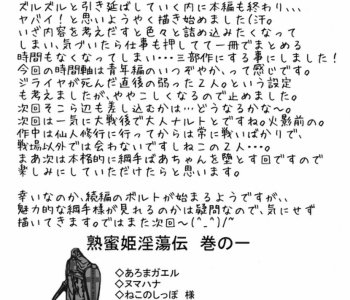 ズルズルと引き延ばしていく内に本編も終わり、、
ヤバイ!と思いようやく描き始めました(汗。
いざ内容を考えだすと色々と詰め込みたくなって
しまい、気づいたら仕事も押してて一冊でまとめる
時間もなくなってしまい・・・三部作にする事にしました!
今回の時間軸は青年編のいつぞやか、って感じです。
ジライヤが死んだ直後の弱った2人。という設定
も考えましたが、ややこしくなるので止めました。
次回そこら辺も差し込むかは…どうなるかな~。
次回は一気に大戦後で大人ナルトとですね。火影前の。
作中は仙人修行に行ってからは常に戦いばかりで、
戦場以外では会わないですしねこの2人・・・。
まあ次は本格的に綱手ばあちゃんを堕とす回ですので
楽しみにしていただけたらと思います。
幸いなのか、続編のボルトが始まるようですが、、
魅力的な綱手様が見れるのかは疑問なので、気にせず
描いてきます。ではまた次回~(^_^)/~
熟蜜姫淫蕩伝 巻の一
◇あろまガエル
◇ヌマハナ
◇ねこのしっぽ 様